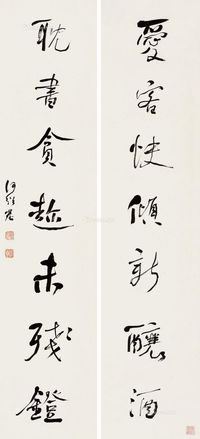 愛客快傾新釀酒
耽書貪趁未殘鐙
何紹基